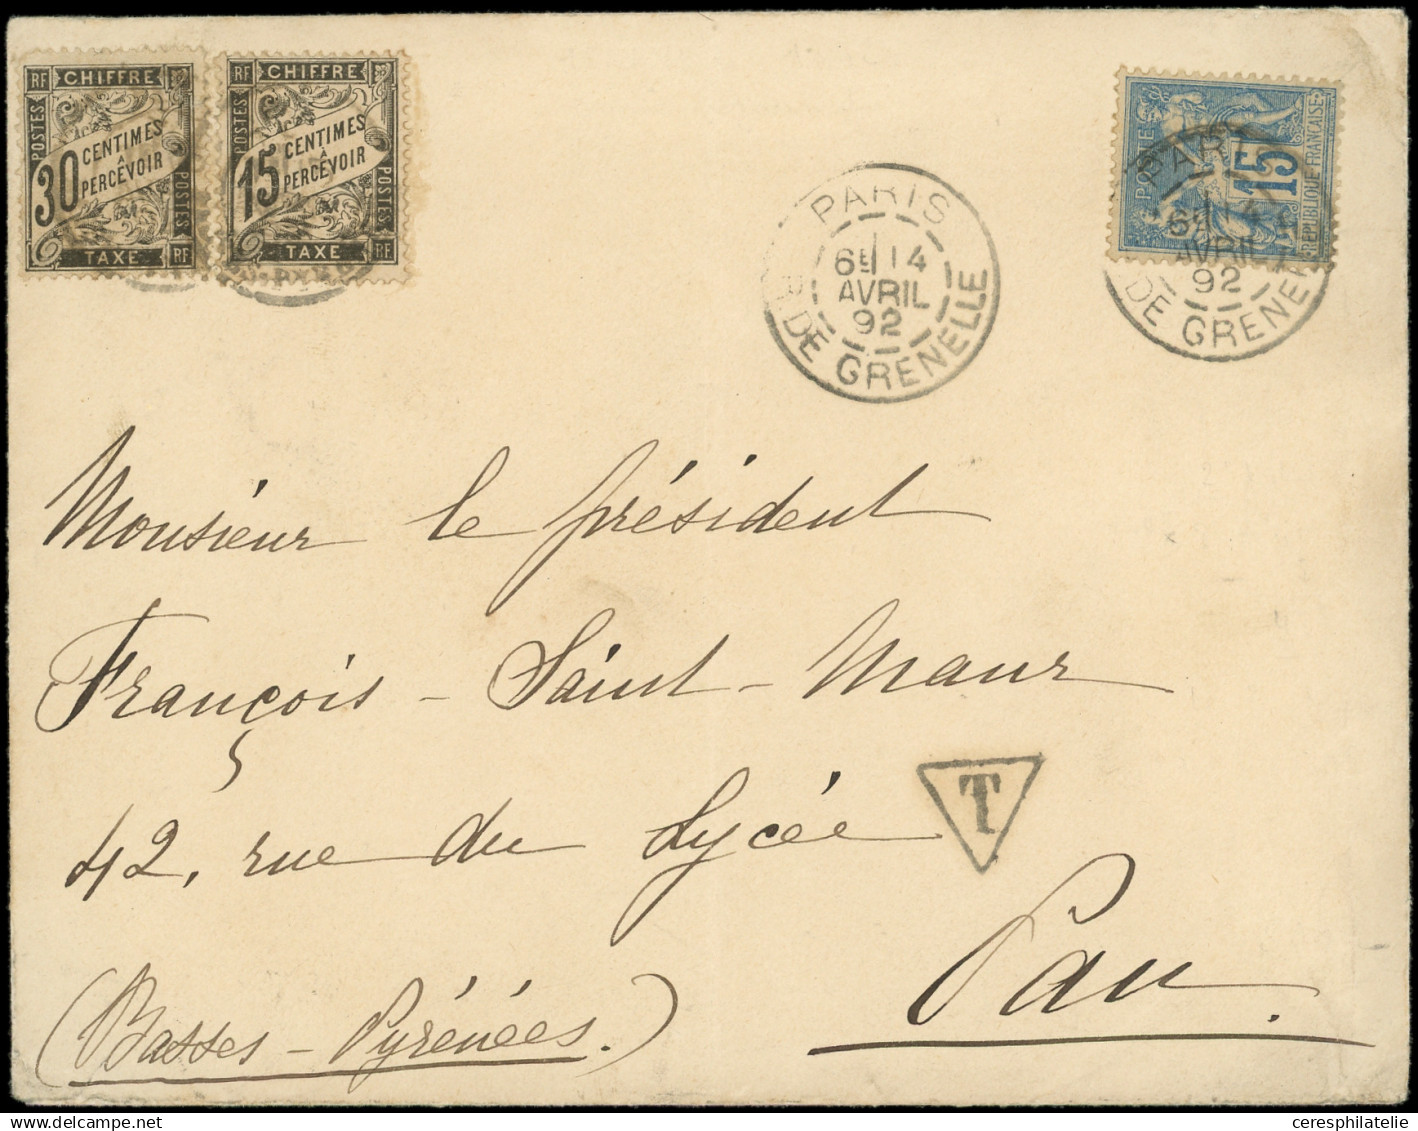 RF CHIFFRE
POSTES
30 CENTIMES
À
PERCEVOIR
POSTES
TAXE RF
RF CHIFFRE
POSTES
15 CENTIMES
À
PERCEVOIR
POSTES
TAXE RF
PARIS
6E 14
AVRIL
92
R. DE GRENELLE
POSTE
15
RÉPUBLIQUE FRANÇAISE
PARIS
6E 14
AVRIL
92
DE GRENE
Monsieur le président
François - Saint - Maur
42, rue du Lycée
T
Pau.
(Basses - Pyrénées.)
ceresphilatelie